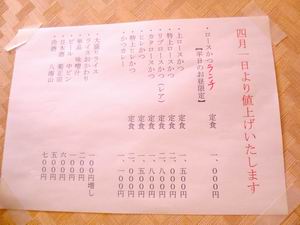 四月一日より値上げいたします
・ロースかつランチ 定食 一、〇〇〇円
【平日のお昼限定】
・上ロースかつ 定食 一、五〇〇円
・特上ロースかつ 定食
・リブロースかつ（レア） 定食
・カタロースかつ 定食
・ヒレかつ 定食 一、五〇〇円
・特上ヒレかつ 定食
・かつカレー 一、一〇〇円
・大盛りライス 一〇〇円増し
・ライスおかわり 二〇〇円
・単品 味噌汁 一〇〇円
・ビール 中ビン 六〇〇円
・日本酒 菊正宗 五〇〇円
・冷酒 八海山 七〇〇円